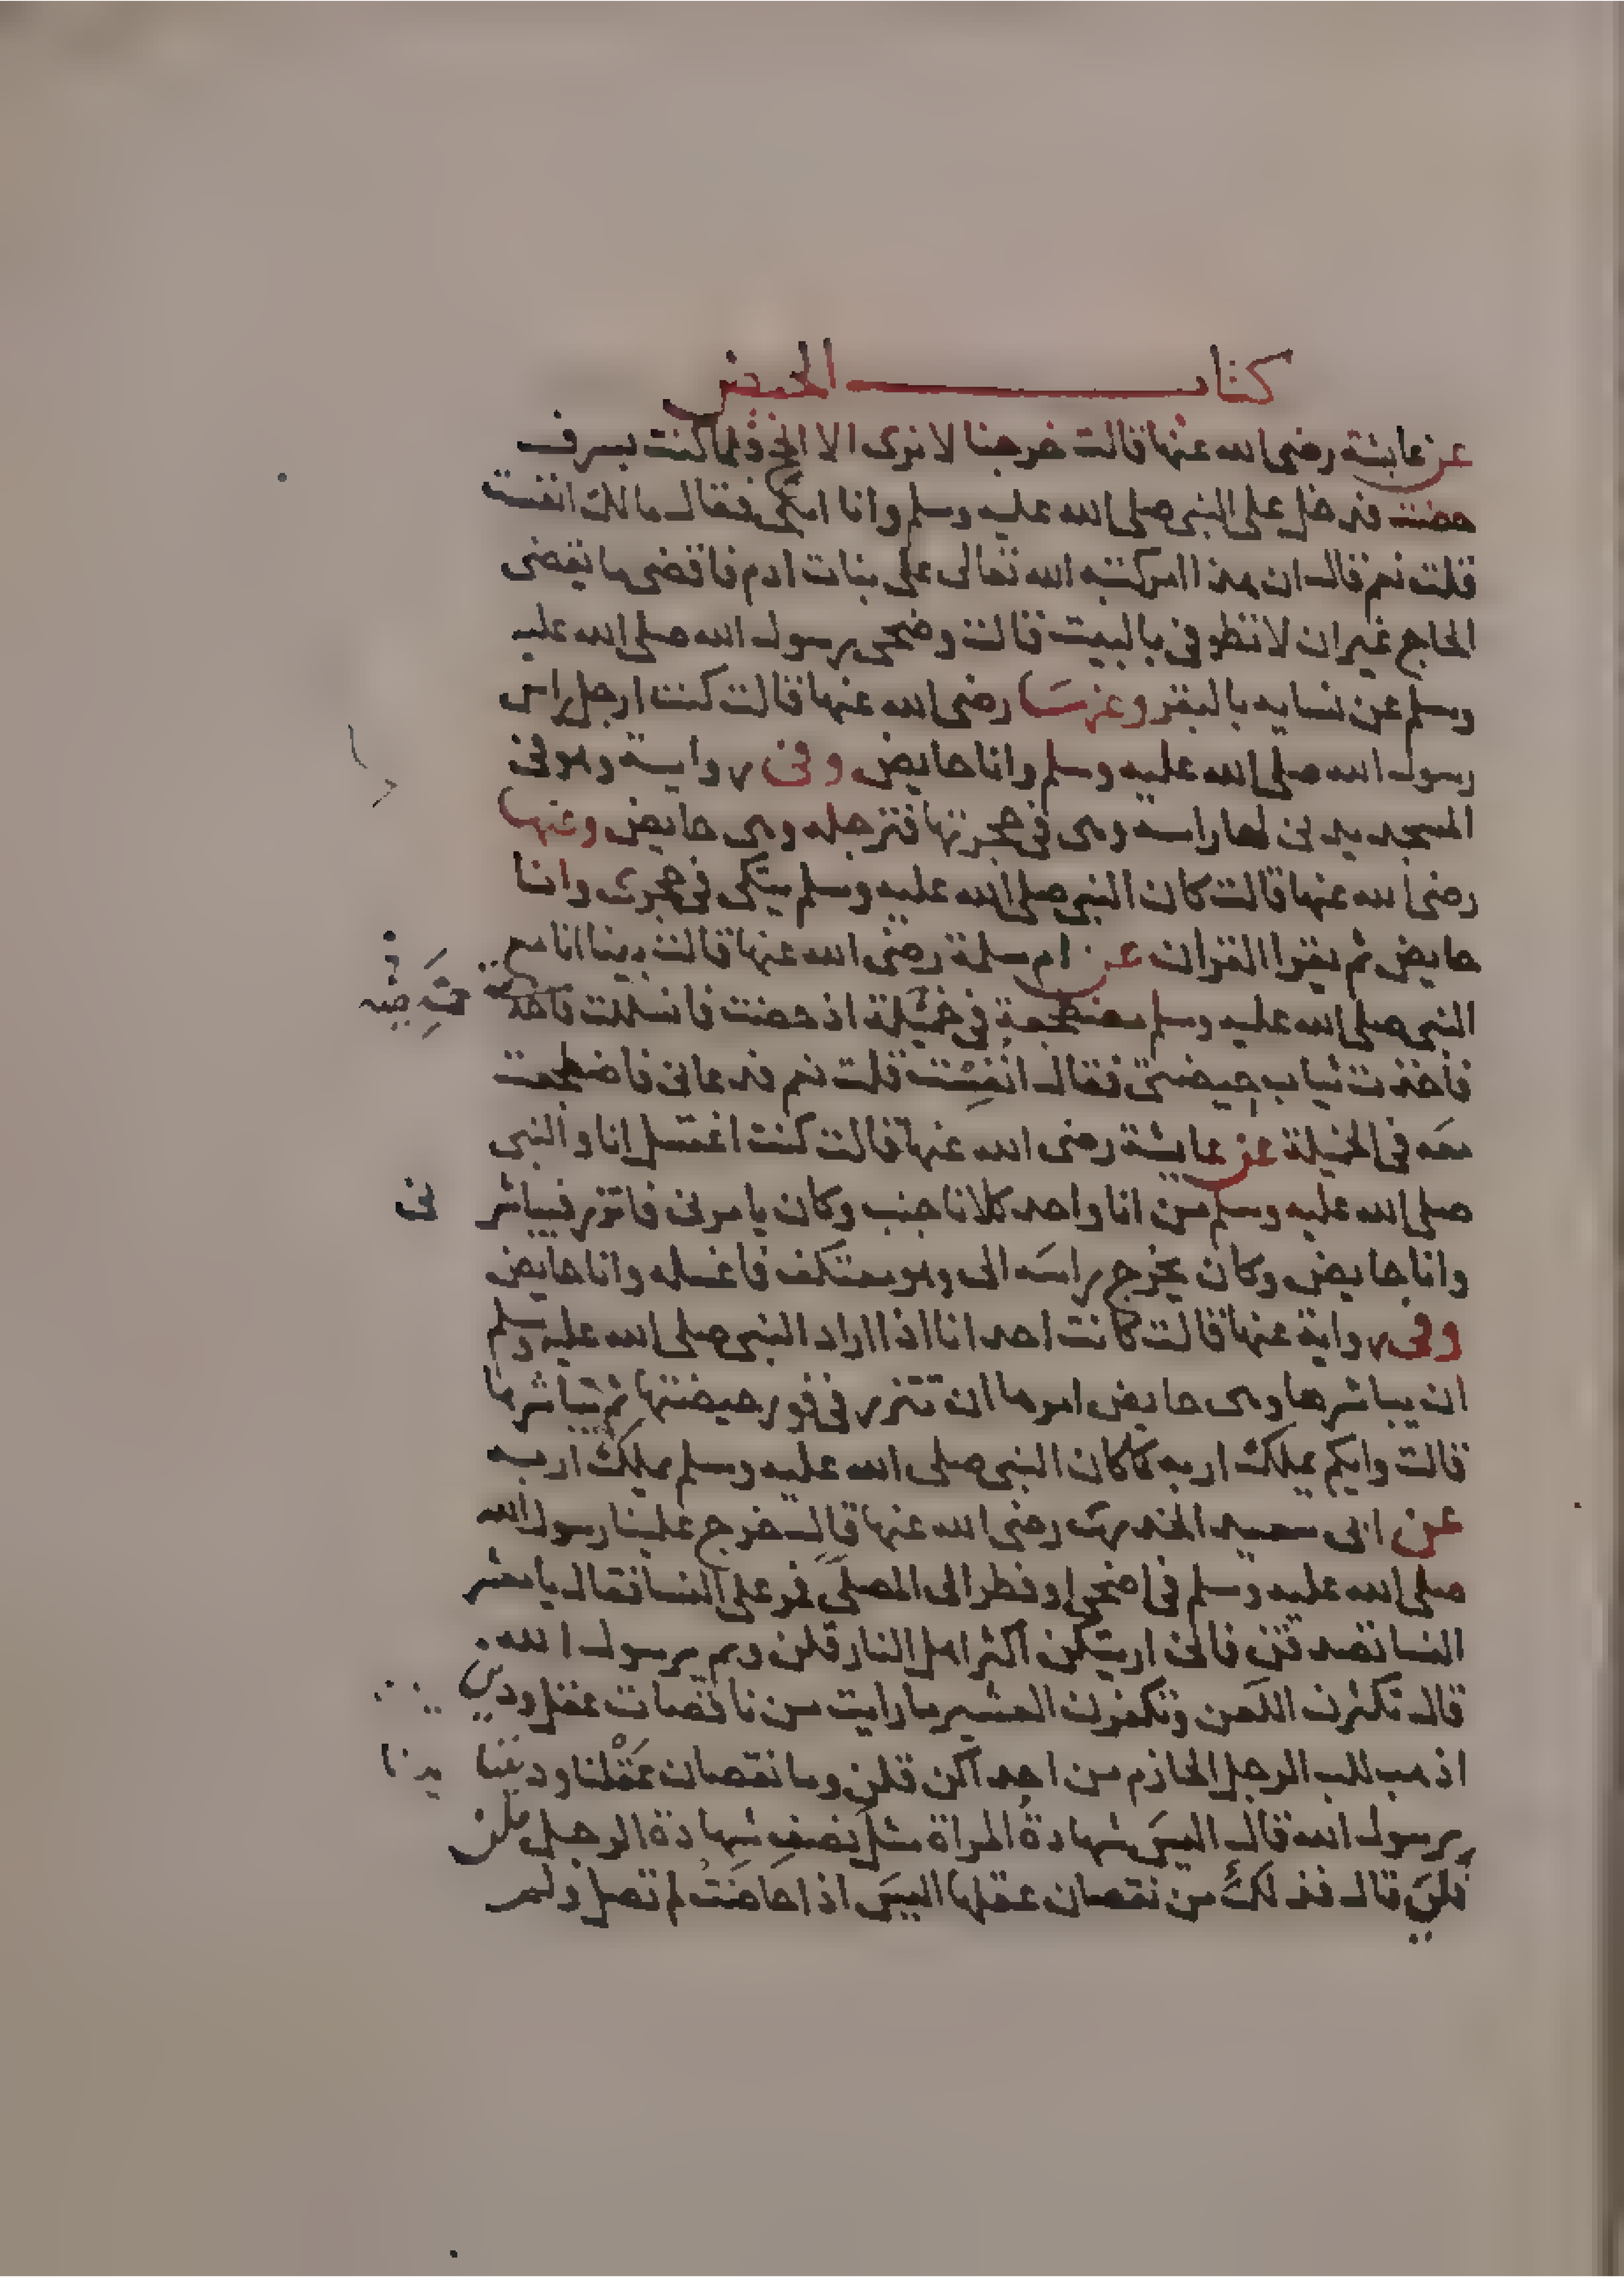 كتاب الحيض
عن عايشة رضى الله عنها قالت خرجنا لا نرى الا الحج فلما كنت بسرف
حضت فدخل على النبي صلى الله عليه وسلم وانا ابكى فقال مالك انفست
قلت نعم قال ان هذا امر كتبه الله تعالى على بنات ادم فاقضى ما يقضى
الحاج غير ان لا تطوفى بالبيت قالت وضحى رسول الله صلى الله عليه
وسلم عن نسايه بالبقر وعنها رضى الله عنها قالت كنت ارجل راس
رسول الله صلى الله عليه وسلم وانا حايض وفى رواية وهو فى
المسجد يدنى لها راسه وهى فى حجرتها فترجله وهى حايض وعنها
رضى الله عنها قالت كان النبي صلى الله عليه وسلم يتكى فى حجرى وانا
حايض ثم يقرا القران عن ام سلمة رضى الله عنها قالت بينا انا مع
النبي صلى الله عليه وسلم مضطجعة فى خميلة اذ حضت فانسللت فاخذت
فاخذت ثياب حيضتى فقال انفست قلت نعم فدعانى فاضطجعت
معه فى الخميلة عن عايشة رضى الله عنها قالت كنت اغتسل انا والنبى
صلى الله عليه وسلم من انا واحد كلانا جنب وكان يامرنى فاتزر فيباشرنى
وانا حايض وكان يخرج راسه الى وهو معتكف فاغسله وانا حايض
وفى رواية عنها قالت كانت احدانا اذا اراد النبي صلى الله عليه وسلم
ان يباشرها وهى حايض امرها ان تتزر فى فور حيضتها ثم يباشرها
قالت وايكم يملك اربه كما كان النبي صلى الله عليه وسلم يملك اربه
عن ابى سعيد الخدرى رضى الله عنها قال خرج علينا رسول الله
صلى الله عليه وسلم فى اضحى او فطر الى المصلى فمر على النسا فقال يا معشر
النسا تصدقن فانى اريتكن اكثر اهل النار قلن وبم يرسول الله
قال تكثرن اللعن وتكفرن العشير ما رايت من ناقصات عقل ودين
اذهب للب الرجل الحازم من احداكن قلن وما نقصان عقلنا وديننا
يرسول الله قال اليس شهادة المراة مثل نصف شهادة الرجل قلن
قلن قال فذلك من نقصان عقلها اليس اذا حاضت لم تصل ولم